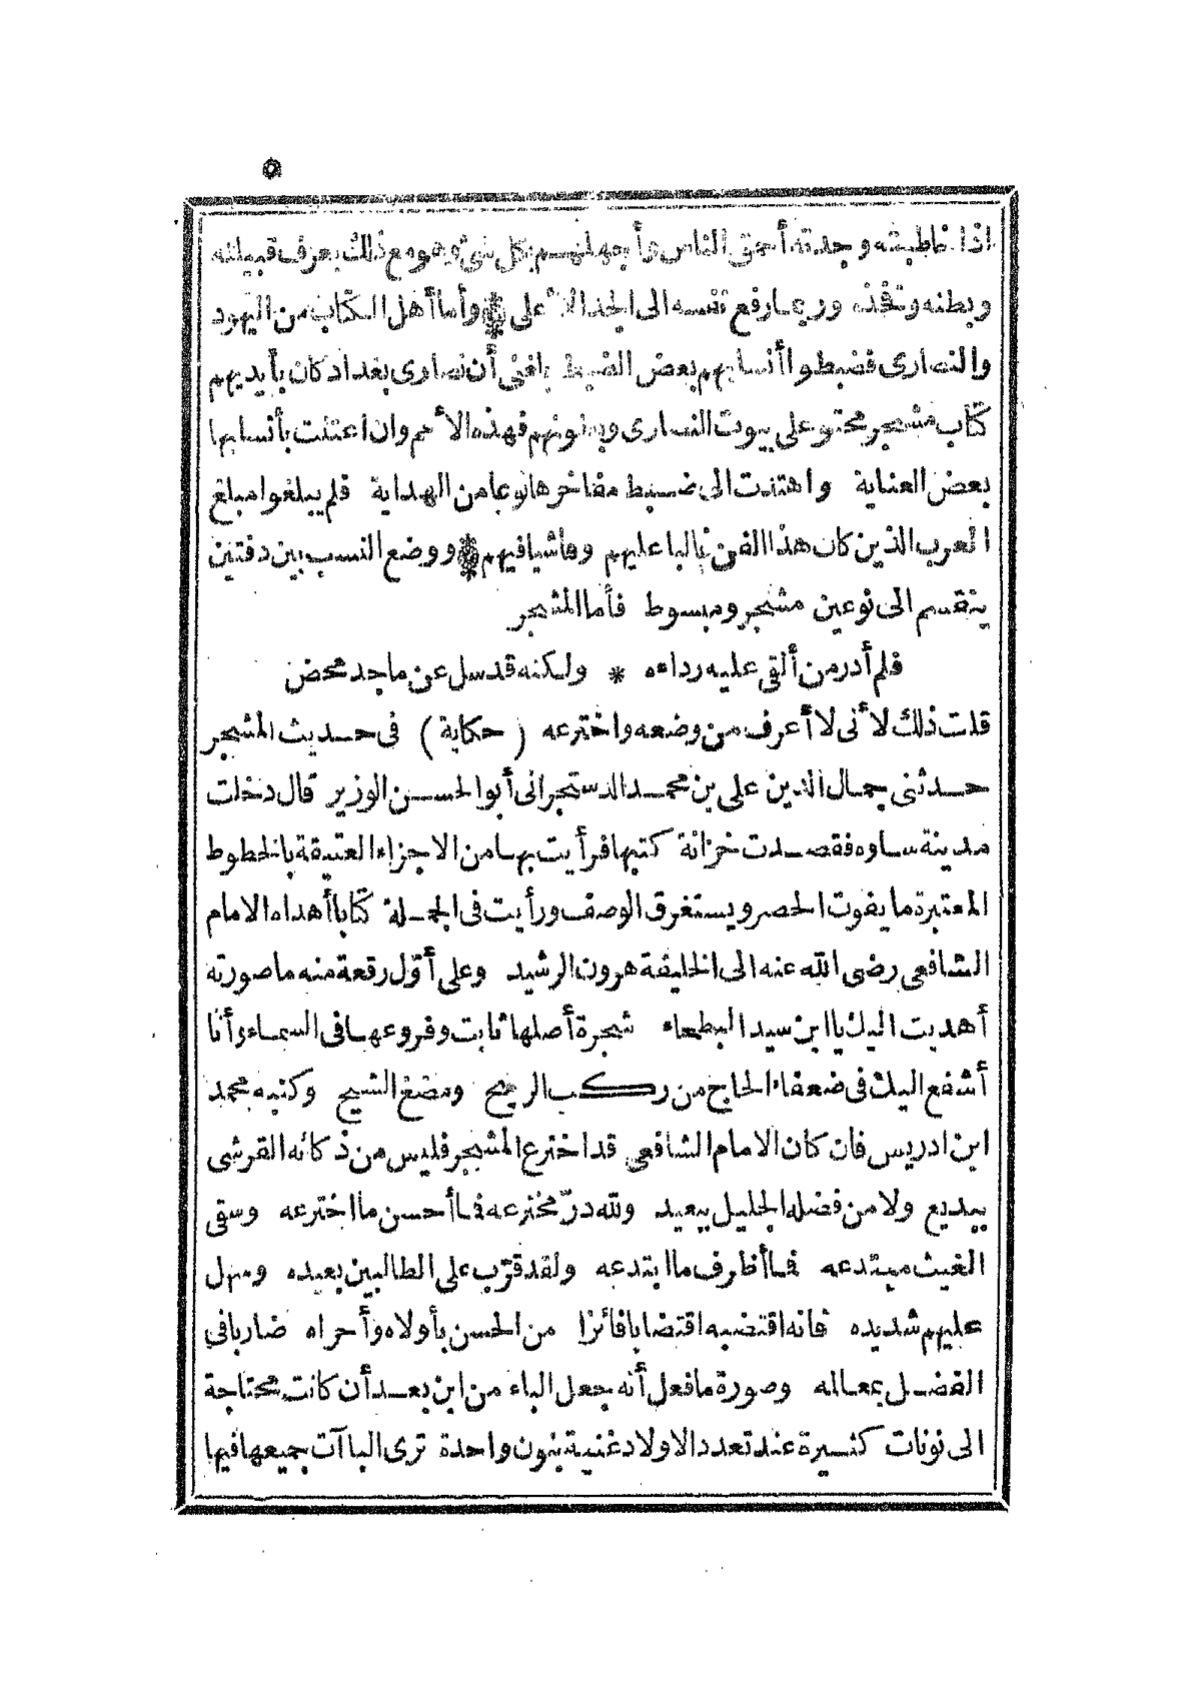 ٥
اذا خاطبته وجدته أحمق الناس وأجهلهم بكل شئ وهو مع ذلك يعرف قبيلته
وبطنه وفخذه وربما رفع نفسه الى الجد الأعلى وأما أهل الكتاب من اليهود
والنصارى فضبطوا أنسابهم بعض الضبط بلغنى أن نصارى بغداد كان بأيديهم
كتاب مشجر محتو على بيوت النصارى وبطونهم فهذه الأمم وان اعتنت بأنسابها
بعض العناية واهتدت الى ضبط مفاخرها نوعا من الهداية فلم يبلغوا مبلغ
العرب الذين كان هذا الفن غالبا عليهم وفاشيا فيهم ووضع النسب بين دفتين
ينقسم الى نوعين مشجر ومبسوط فأما المشجر
فلم أدر من ألقى عليه رداءه * ولكنه قد سل عن ماجد محض
قلت ذلك لأنى لا أعرف من وضعه واخترعه (حكاية) فى حديث المشجر
حدثنى جمال الدين على بن محمد الدستجرانى أبو الحسن الوزير قال دخلت
مدينة ساوه فقصدت خزانة كتبها فرأيت بها من الاجزاء العتيقة بالخطوط
المعتبرة ما يفوت الحصر ويستغرق الوصف ورأيت فى الجملة كتابا أهداه الامام
الشافعى رضى الله عنه الى الخليفة هرون الرشيد وعلى أوّل رقعة منه ما صورته
أهديت اليك يا ابن سيد البطحاء شجرة أصلها ثابت وفروعها فى السماء وأنا
أشفع اليك فى ضعفاء الحاج من ركب الريح ومضغ الشيح وكتبه محمد
ابن ادريس فان كان الامام الشافعى قد اخترع المشجر فليس من ذكائه القرشى
ببديع ولا من فضله الجليل ببعيد ولله درّ مخترعه فما أحسن ما اخترعه وسقى
الغيث مبتدعه فما أظرف ما ابتدعه ولقد قرّب على الطالبين بعيده وسهل
عليهم شديده فانه اقتضبه اقتضابا فائزا من الحسن بأولاه وأحراه ضاربا فى
الفضل بمعاله وصورة ما فعل أنه جعل الباء من ابن بعد أن كانت محتاجة
الى نونات كثيرة عند تعدد الاولاد غنية بنون واحدة ترى الباآت جميعها فيها